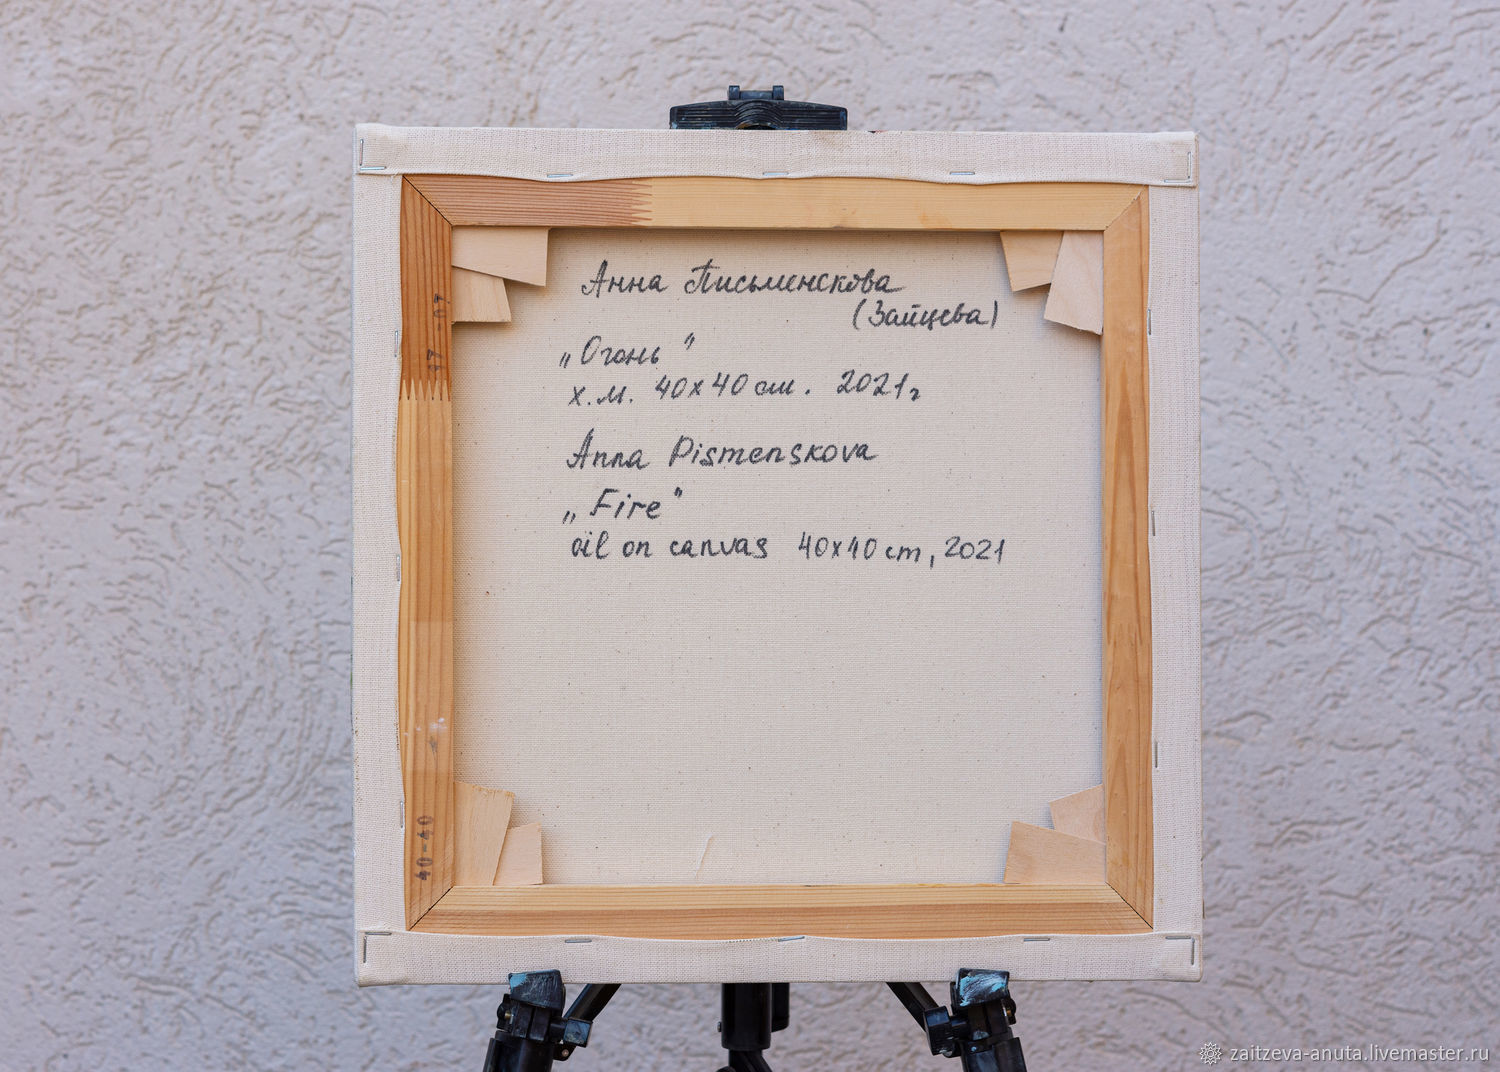 Анна Письменскова
(Зайцева)
„Огонь"
х.м. 40х40 см. 2021г
Anna Pismenskova
„Fire"
oil on canvas 40x40 cm, 2021
40-40
zaitzeva-anuta.livemaster.ru